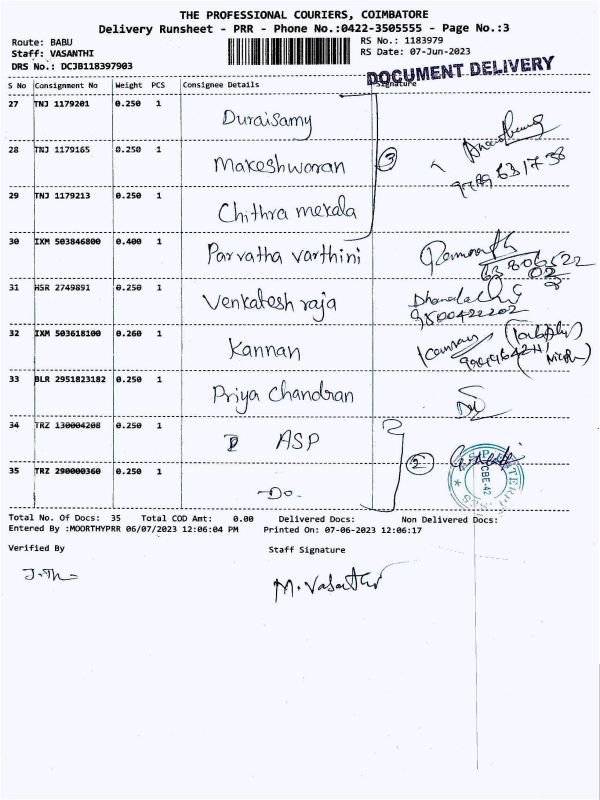 THE PROFESSIONAL COURIERS, COIMBATORE
Delivery Runsheet - PRR - Phone No.:0422-3505555 - Page No.:3
Route: BABU
Staff: VASANTHI
DRS No.: DCJB118397903
RS No.: 1183979
RS Date: 07-Jun-2023
DOCUMENT DELIVERY
S No Consignment No Weight PCS Consignee Details Signature
27 TNJ 1179201 0.250 1 Duraisamy
28 TNJ 1179165 0.250 1 Makeshwaran
3
9789631738
29 TNJ 1179213 0.250 1 Chithra mekala
30 IXM 503846800 0.400 1 Parvatha varthini
31 HSR 2749891 0.250 1 Venkatesh raja
9500422202
32 IXM 503618100 0.260 1 Kannan
33 BLR 2951823182 0.250 1 Priya Chandran
34 TRZ 130004208 0.250 1 ASP
2
CBE-42
35 TRZ 290000360 0.250 1 -Do-
Total No. Of Docs: 35 Total COD Amt: 0.00 Delivered Docs: Non Delivered Docs:
Entered By :MOORTHYPRR 06/07/2023 12:06:04 PM Printed On: 07-06-2023 12:06:17
Verified By Staff Signature
M. Vasanthi